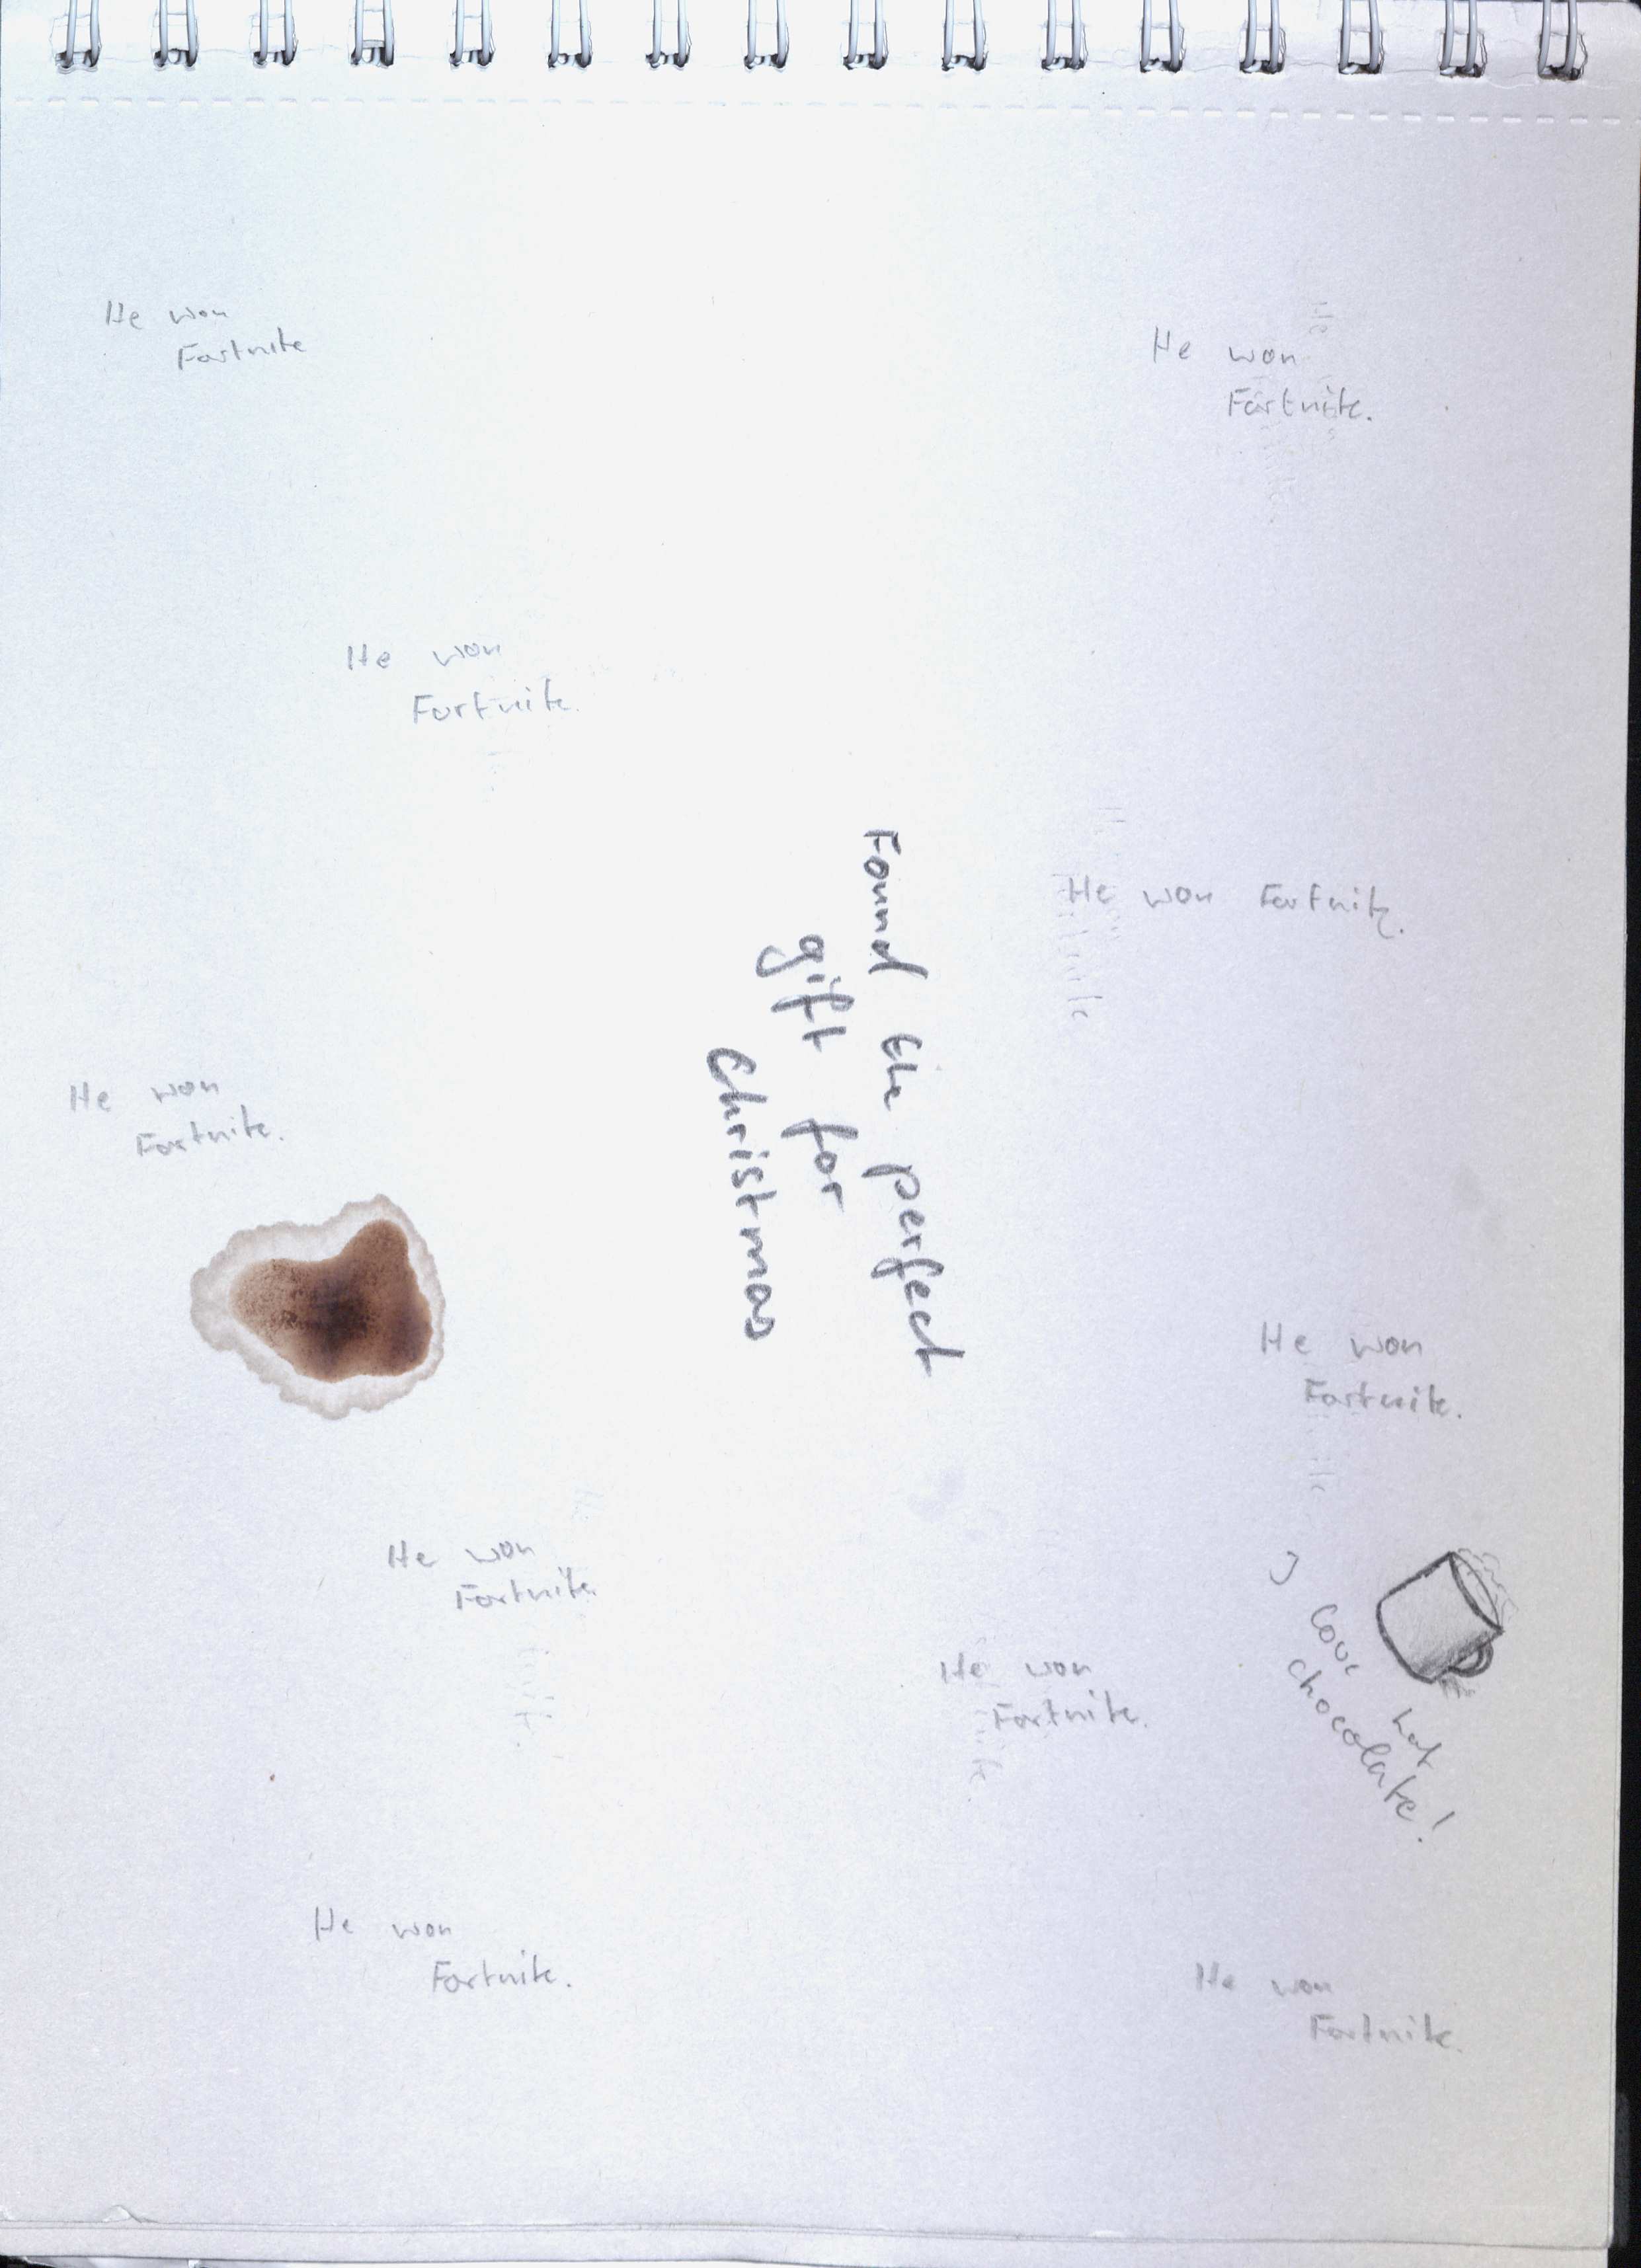 He won
Fortnite
He won
Fortnite.
He won
Fortnite.
Found the perfect
gift for
Christmas
He won Fortnite.
He won
Fortnite.
He won
Fortnite.
He won
Fortnite.
I love hot
chocolate!
He won
Fortnite.
He won
Fortnite.
He won
Fortnite.